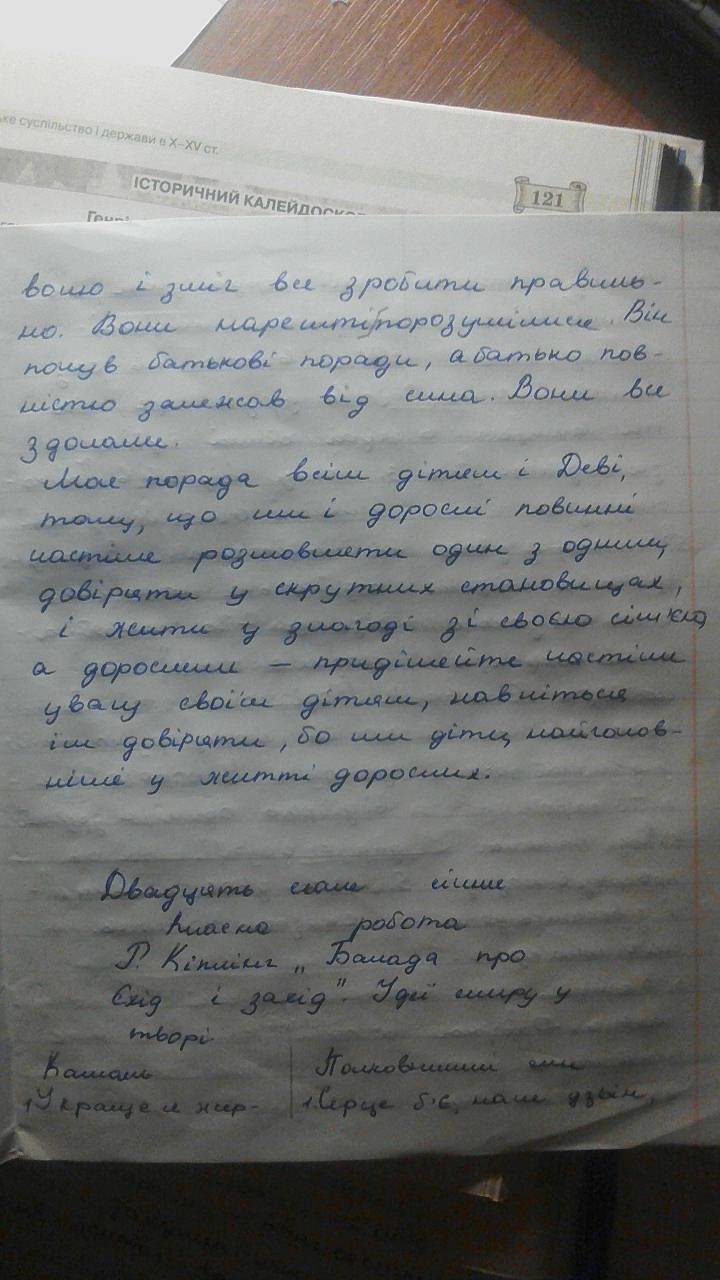 ке суспільство і держави в X–XV ст.
ІСТОРИЧНИЙ КАЛЕЙДОСКО
121
Генрі
вошо і зміг все зробити правиль-
но. Вони нарешті порозумілися. Він
почув батькові поради, а батько пов-
ністю залежав від сина. Вони все
здолали.
Моя порада всім дітям і Деві,
тому, що ми і дорослі повинні
частіше розмовляти один з одним,
довіряти у скрутних становищах,
і жити у злагоді зі своєю сім'єю,
а дорослим – приділяйте частіше
увагу своїм дітям, навчіться
їм довіряти, бо ми діти, найголов-
ніші у житті дорослих.
Двадцять сьоме січня
Класна робота
Р. Кіплінг „Балада про
Схід і Захід". Ідеї миру у
творі.
Камаль
Полковницький син
1. Украще м жер-
1. Серце б'є, наче дзвін,